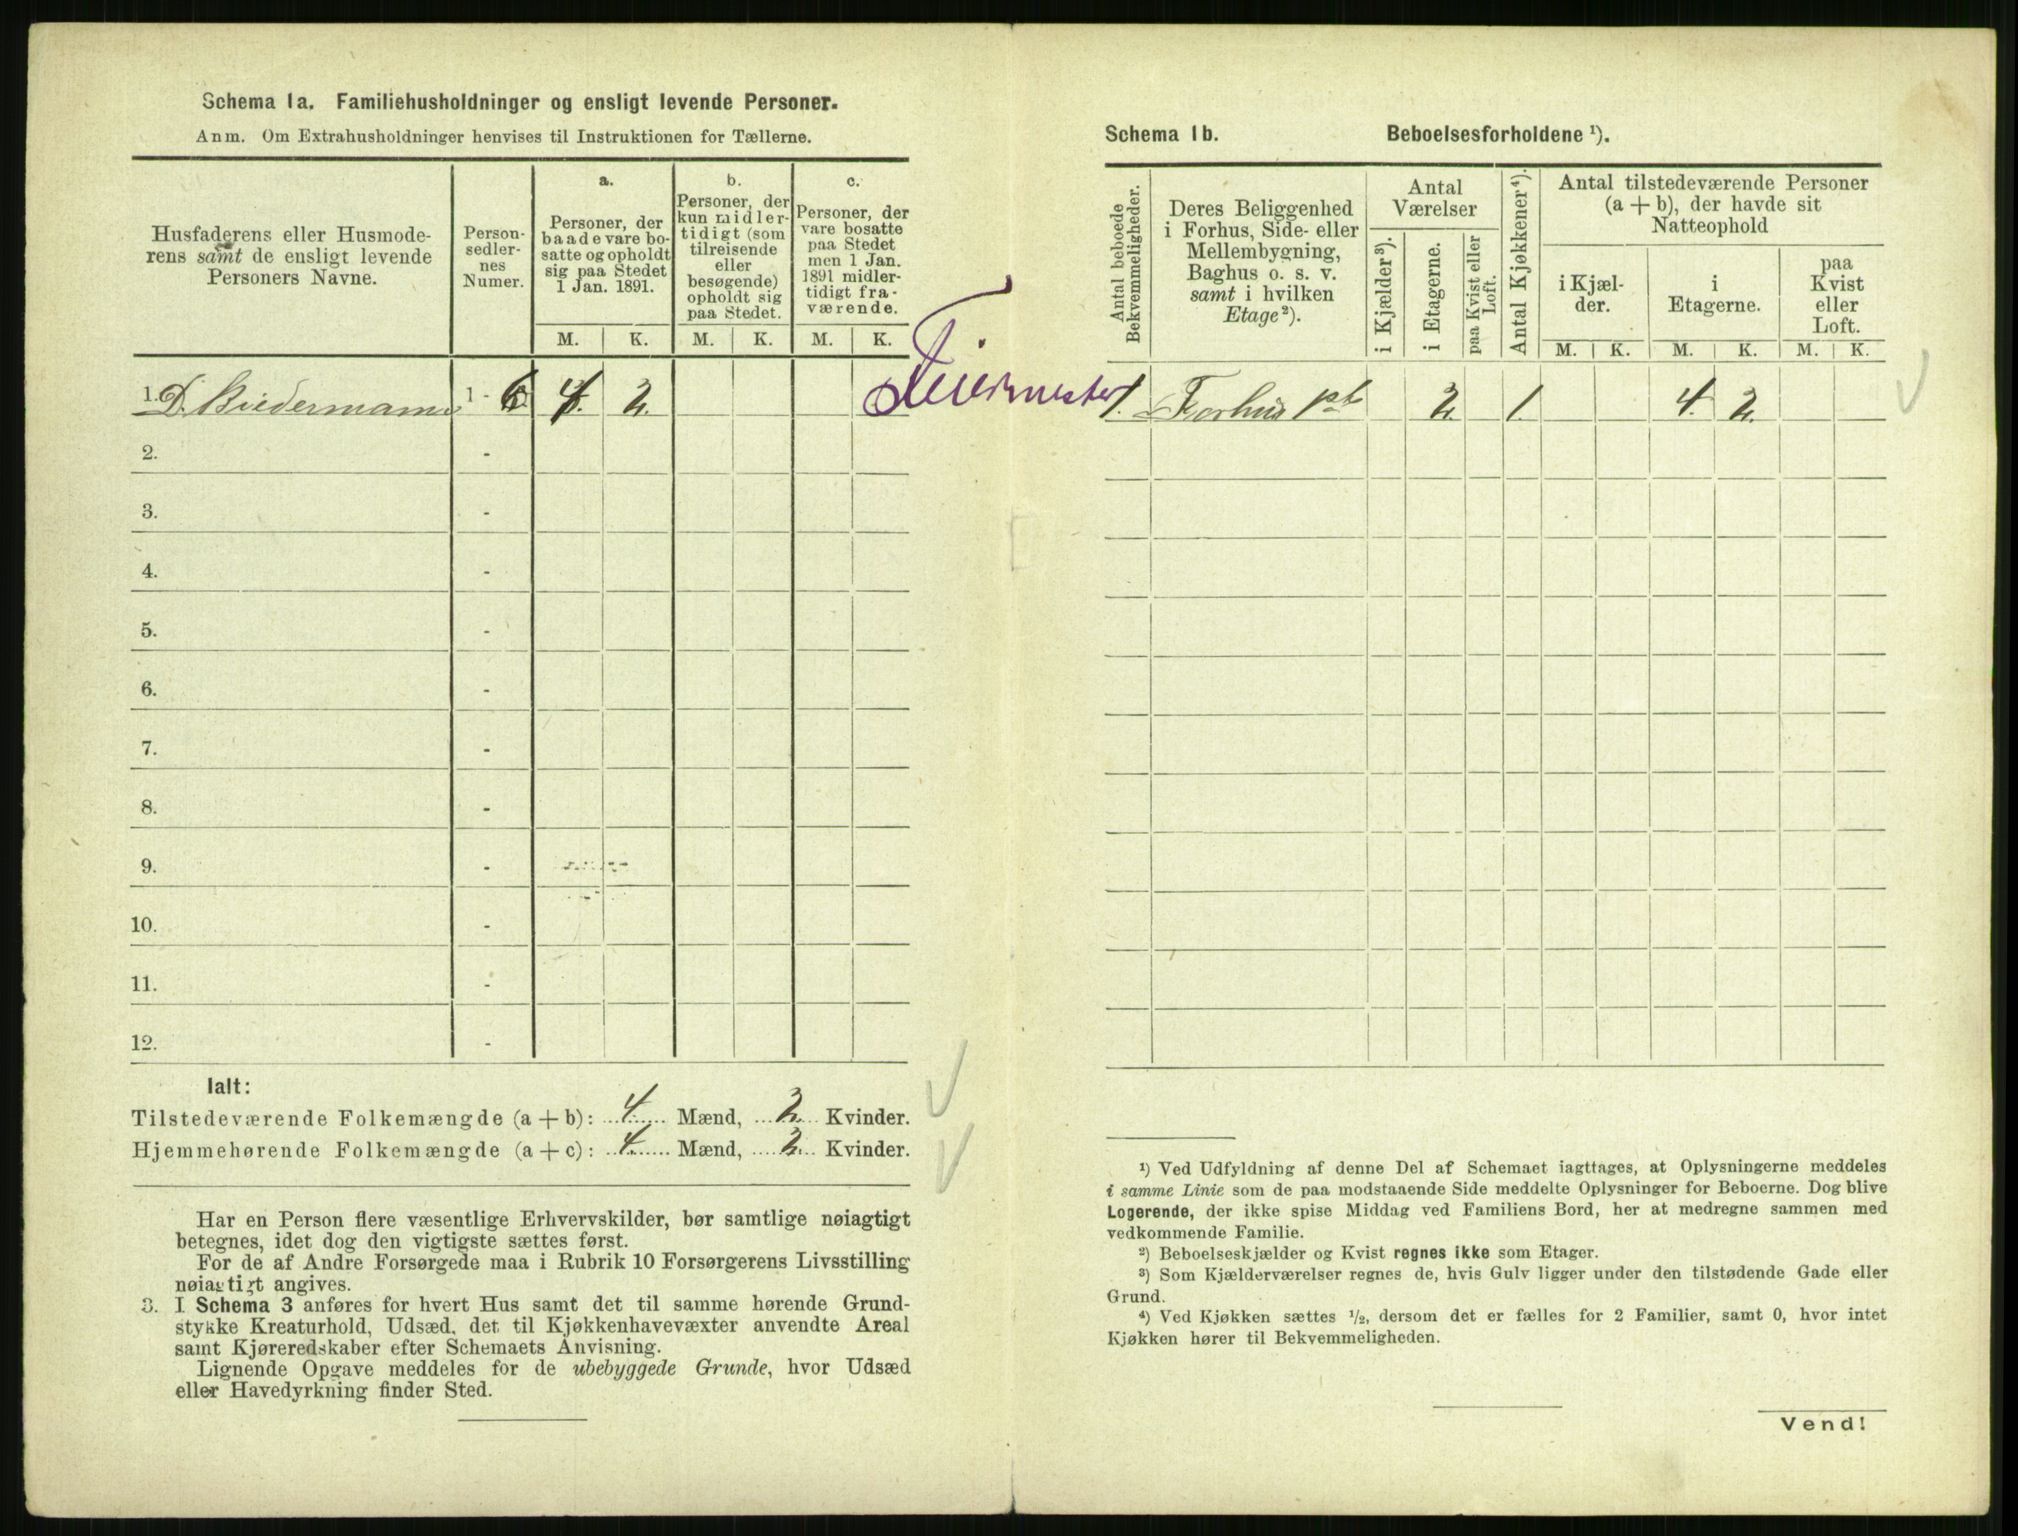 Schema 1a. Familiehusholdninger og ensligt levende Personer.
Anm. Om Extrahusholdninger henvises til Instruktionen for Tællerne.
Husfaderens eller Husmode-
rens samt de ensligt levende
Personers Navne.
Person-
sedler-
nes
Numer.
a.
Personer, der
baade vare bo-
satte og opholdt
sig paa Stedet
1 Jan. 1891.
b.
Personer, der
kun midler-
tidigt (som
tilreisende
eller
besøgende)
opholdt sig
paa Stedet.
c.
Personer, der
vare bosatte
paa Stedet
men 1 Jan.
1891 midler-
tidigt fra-
værende.
M. K. M. K. M. K.
1. D. Biedermann 1 - 6 4. 2. Feiermester
2. -
3. -
4. -
5. -
6. -
7. -
8. -
9. -
10. -
11. -
12. -
Ialt:
Tilstedeværende Folkemængde (a + b): 4. Mænd, 2. Kvinder.
Hjemmehørende Folkemængde (a + c): 4. Mænd, 2. Kvinder.
Har en Person flere væsentlige Erhvervskilder, bør samtlige nøiagtigt
betegnes, idet dog den vigtigste sættes først.
For de af Andre Forsørgede maa i Rubrik 10 Forsørgerens Livsstilling
nøiagtigt angives.
3. I Schema 3 anføres for hvert Hus samt det til samme hørende Grund-
stykke Kreaturhold, Udsæd, det til Kjøkkenhavevæxter anvendte Areal
samt Kjøreredskaber efter Schemaets Anvisning.
Lignende Opgave meddeles for de ubebyggede Grunde, hvor Udsæd
eller Havedyrkning finder Sted.
Schema 1b. Beboelsesforholdene ¹).
Antal beboede
Bekvemmeligheder.
Deres Beliggenhed
i Forhus, Side- eller
Mellembygning,
Baghus o. s. v.
samt i hvilken
Etage²).
Antal
Værelser
i Kjælder³).
i Etagerne.
paa Kvist eller
Loft.
Antal Kjøkkener⁴).
Antal tilstedeværende Personer
(a + b), der havde sit
Natteophold
i Kjæl-
der.
i
Etagerne.
paa
Kvist
eller
Loft.
M. K. M. K. M. K.
1. Forhus 1st 2. 1. 4. 2.
¹) Ved Udfyldning af denne Del af Schemaet iagttages, at Oplysningerne meddeles
i samme Linie som de paa modstaaende Side meddelte Oplysninger for Beboerne. Dog blive
Logerende, der ikke spise Middag ved Familiens Bord, her at medregne sammen med
vedkommende Familie.
²) Beboelseskjælder og Kvist regnes ikke som Etager.
³) Som Kjælderværelser regnes de, hvis Gulv ligger under den tilstødende Gade eller
Grund.
⁴) Ved Kjøkken sættes ½, dersom det er fælles for 2 Familier, samt 0, hvor intet
Kjøkken hører til Bekvemmeligheden.
Vend!